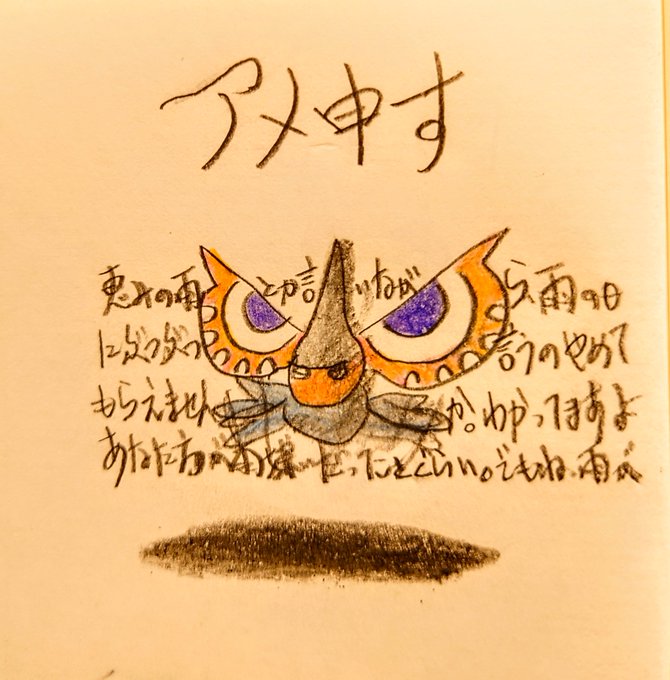 アメ申す
恵みの雨とか言いながら、雨の日
にぶつぶつ言うのやめて
もらえませんか。わかってますよ
あなた方が雨嫌いだったことぐらい。でもね、雨が